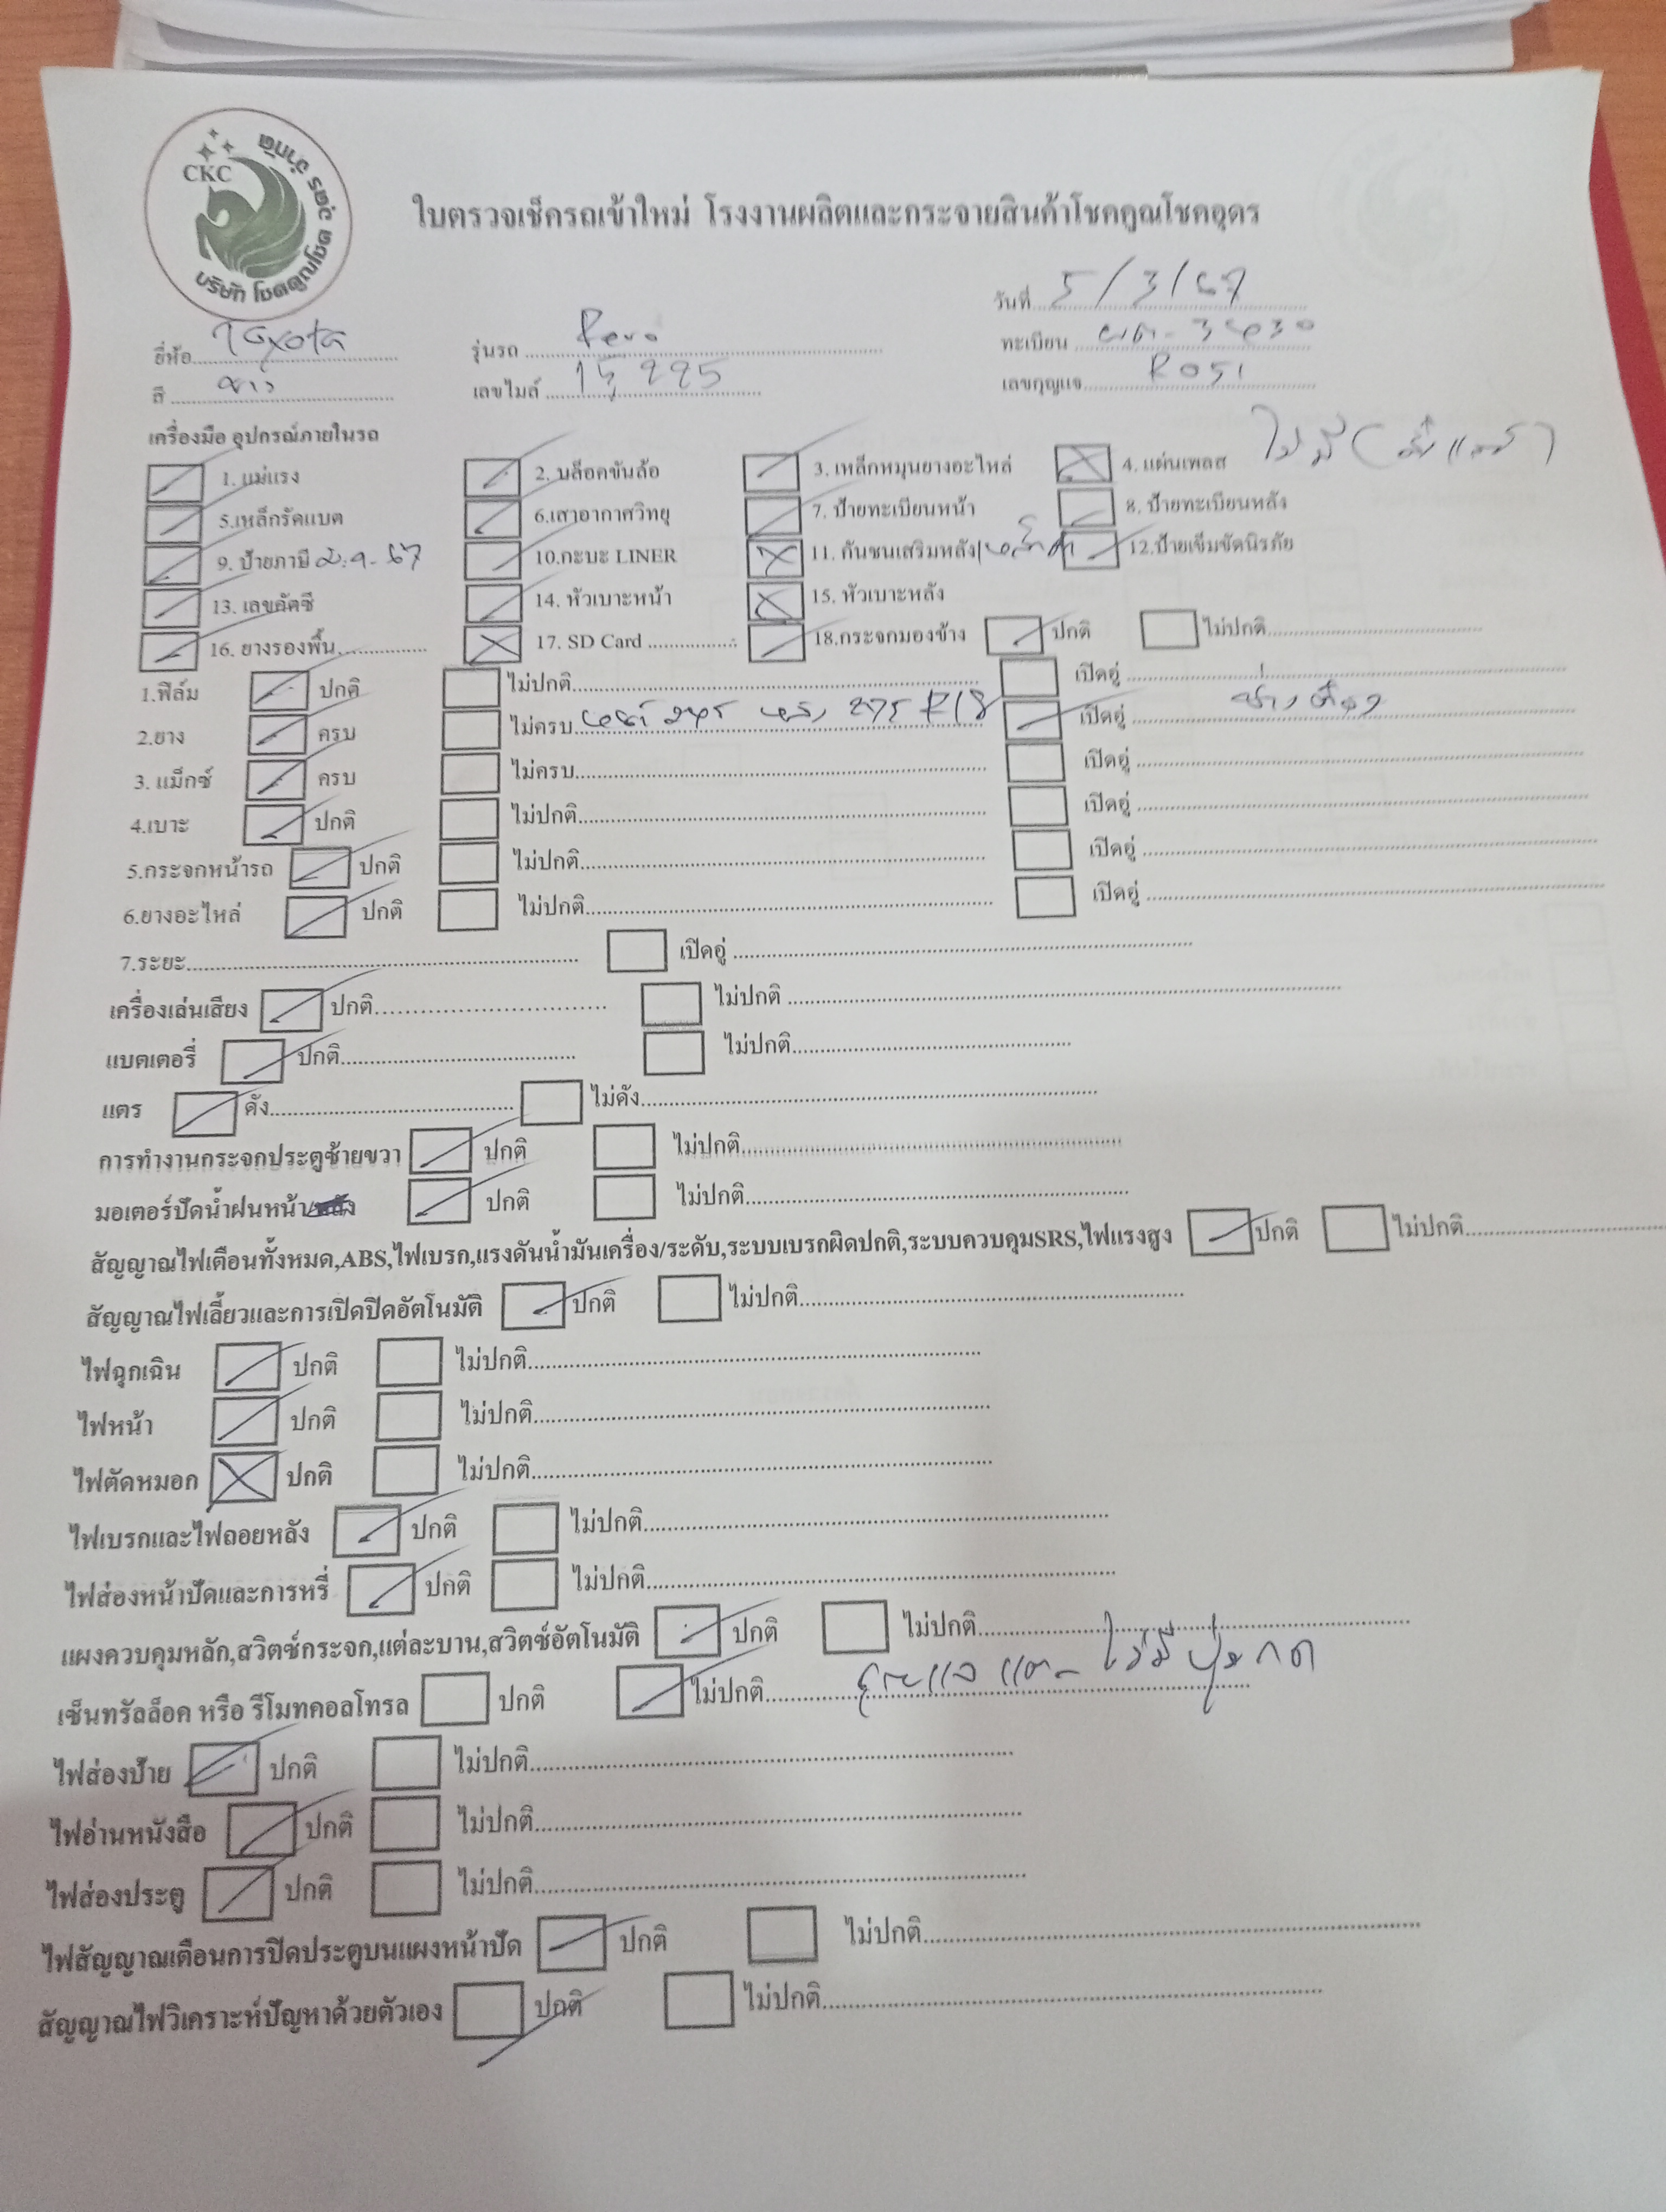 CKC
บริษัท โชคคูณโชค อุดร จำกัด
ใบตรวจเช็ครถเข้าใหม่ โรงงานผลิตและกระจายสินค้าโชคคูณโชคอุดร
วันที่ 5/3/67
ยี่ห้อ Toyota รุ่นรถ Revo ทะเบียน
สี ขาว เลขไมล์ 15225 เลขกุญแจ R051
เครื่องมือ อุปกรณ์ภายในรถ
1. แม่แรง 2. บล็อคขันล้อ 3. เหล็กหมุนยางอะไหล่ 4. แผ่นเพลส ไม่มี
5.เหล็กรัดแบต 6.เสาอากาศวิทยุ 7. ป้ายทะเบียนหน้า 8. ป้ายทะเบียนหลัง
9. ป้ายภาษี 10.กะบะ LINER 11. กันชนเสริมหลัง 12.ป้ายเข็มขัดนิรภัย
13. เลขคัตซี 14. หัวเบาะหน้า 15. หัวเบาะหลัง
16. ยางรองพื้น 17. SD Card 18.กระจกมองข้าง ปกติ ไม่ปกติ
1.ฟิล์ม ปกติ ไม่ปกติ เปิดอู่
2.ยาง ครบ ไม่ครบ หน้า 245 หลัง 275 R18 เปิดอู่
3. แม็กซ์ ครบ ไม่ครบ เปิดอู่
4.เบาะ ปกติ ไม่ปกติ เปิดอู่
5.กระจกหน้ารถ ปกติ ไม่ปกติ เปิดอู่
6.ยางอะไหล่ ปกติ ไม่ปกติ เปิดอู่
7.ระยะ เปิดอู่
เครื่องเล่นเสียง ปกติ ไม่ปกติ
แบตเตอรี่ ปกติ ไม่ปกติ
แตร ดัง ไม่ดัง
การทำงานกระจกประตูซ้ายขวา ปกติ ไม่ปกติ
มอเตอร์ปัดน้ำฝนหน้า ปกติ ไม่ปกติ
สัญญาณไฟเตือนทั้งหมด,ABS,ไฟเบรก,แรงดันน้ำมันเครื่อง/ระดับ,ระบบเบรกผิดปกติ,ระบบควบคุมSRS,ไฟแรงสูง ปกติ ไม่ปกติ
สัญญาณไฟเลี้ยวและการเปิดปิดอัตโนมัติ ปกติ ไม่ปกติ
ไฟฉุกเฉิน ปกติ ไม่ปกติ
ไฟหน้า ปกติ ไม่ปกติ
ไฟตัดหมอก ปกติ ไม่ปกติ
ไฟเบรกและไฟถอยหลัง ปกติ ไม่ปกติ
ไฟส่องหน้าปัดและการหรี่ ปกติ ไม่ปกติ
แผงควบคุมหลัก,สวิตซ์กระจก,แต่ละบาน,สวิตซ์อัตโนมัติ ปกติ ไม่ปกติ
เซ็นทรัลล็อค หรือ รีโมทคอลโทรล ปกติ ไม่ปกติ ไม่มีปุ่มกด
ไฟส่องป้าย ปกติ ไม่ปกติ
ไฟอ่านหนังสือ ปกติ ไม่ปกติ
ไฟส่องประตู ปกติ ไม่ปกติ
ไฟสัญญาณเตือนการปิดประตูบนแผงหน้าปัด ปกติ ไม่ปกติ
สัญญาณไฟวิเคราะห์ปัญหาด้วยตัวเอง ปกติ ไม่ปกติ